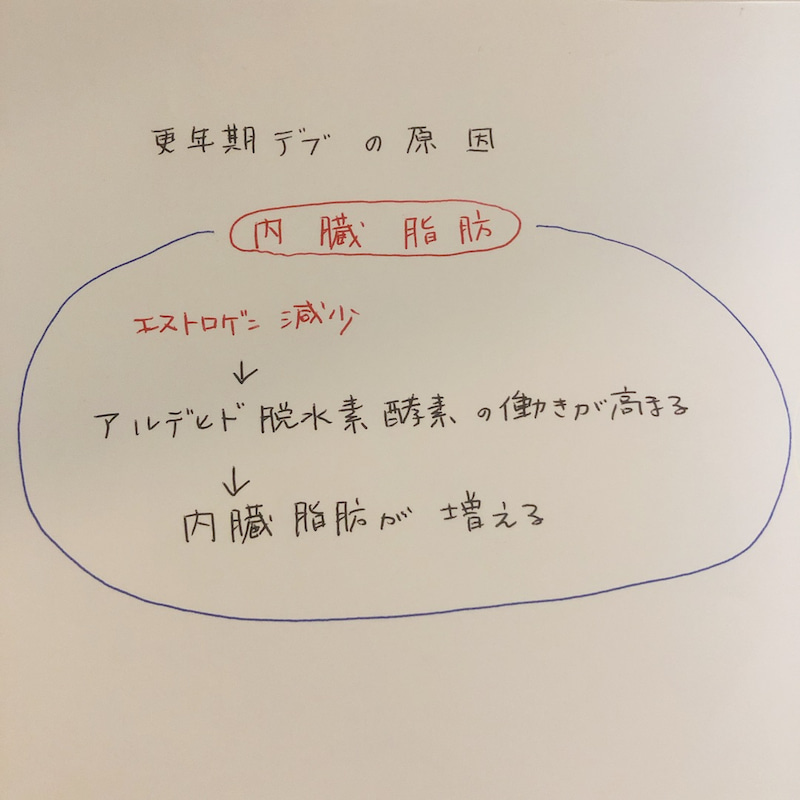 更年期デブの原因
内臓脂肪
エストロゲン減少
↓
アルデヒド脱水素酵素の働きが高まる
↓
内臓脂肪が増える